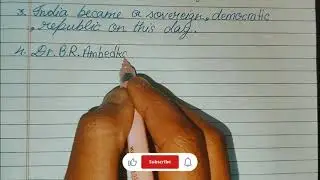 3. India became a sovereign, democratic
, republic on this day.
4. Dr. B.R. Ambedka
Subscribe